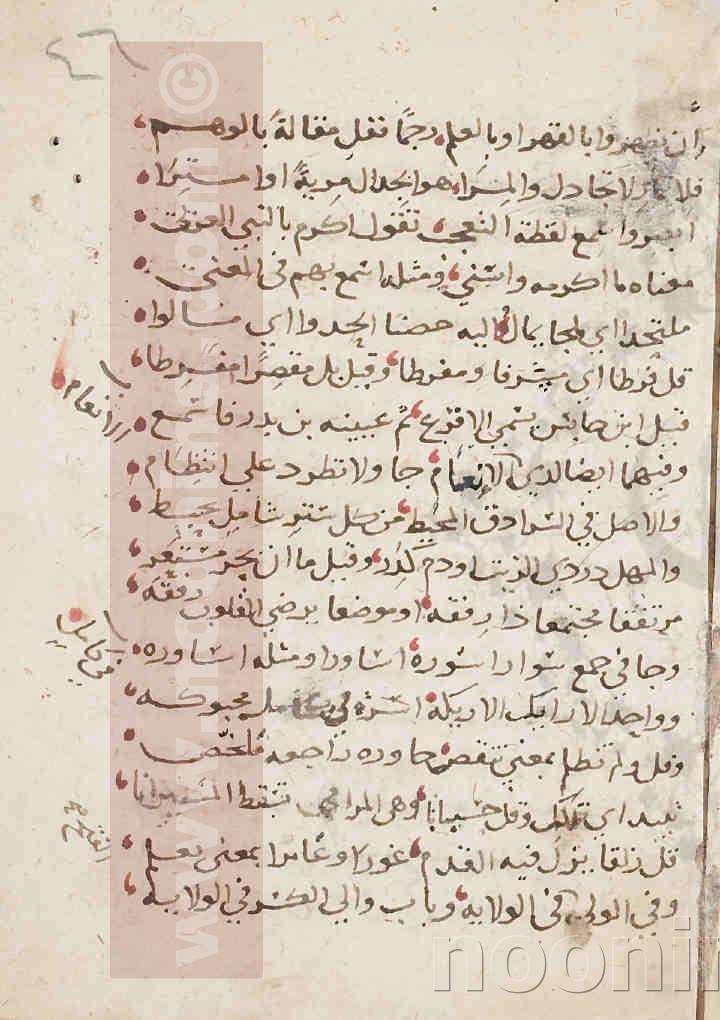 ٤٦
ان تظهروا بالقهر او بالعلم رجما فقل مقالة بالوهم
فلا تمار لا تجادل والمرا هو الجدال مرية او امترا
ابصروا سمع لفظة التعجب تقول اكرم بالنبي
معناه ما اكرمه واستني ومثله اسمع بهم في المعنى
ملتحدا اي ملجا يمال اليه حصنا الحدوا اي مالوا
قل فرطا اي سرفا ومفرطا وقيل بل مقصرا مفرطا
قيل ابن حابس يسمى الاقرع ثم عيينه بن بدر فاسمع
وفيهما ايضا لدي الانعام جا ولا تطرد على انتظام
والاصل في السرادق المحيط من كل ستر شامل يحيط
والمهل دردي الزيت او دم كدر وقيل ما ان بحر مستعر
مرتفقا مجتمعا ذا رفقه او موضعا يرضي رفقه
وجا في جمع سوار اسوره اساورا ومثله اساوره
وواحد الارايك الاريكة اسرة في محبوكه
وقل ولم تظلم بمعنى تنقص حاوره راجعه فلخص
تبيد اي تهلك وقل حسبانا وهى المرامي تسقط النيرانا
قل زلقا يزل فيه القدم غورا وغايرا بمعنى يعلم
وفي الولي في الولايه وباب والي الكسر في الولايه
الانعام
noonin
www. .com ©